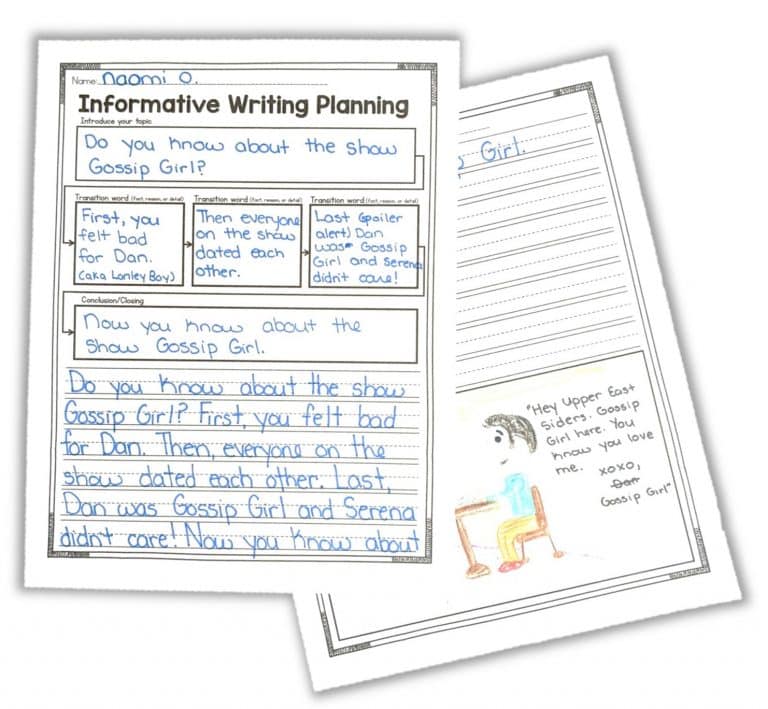 Name: Naomi O.
Informative Writing Planning
Introduce your topic
Do you know about the show
Gossip Girl?
Transition word (fact, reason, or detail)
First, you
felt bad
for Dan.
(aka Lonley Boy)
Transition word (fact, reason, or detail)
Then everyone
on the show
dated each
other.
Transition word (fact, reason, or detail)
Last (spoiler
alert) Dan
was Gossip
Girl and Serena
didn't care!
Conclusion/Closing
Now you know about the
show Gossip Girl.
Do you know about the show
Gossip Girl? First, you felt bad
for Dan. Then, everyone on the
show dated each other. Last,
Dan was Gossip Girl and Serena
didn't care! Now you know about
Girl.
"Hey Upper East
Siders. Gossip
Girl here. You
know you love
me. xoxo,
Dan
Gossip Girl"